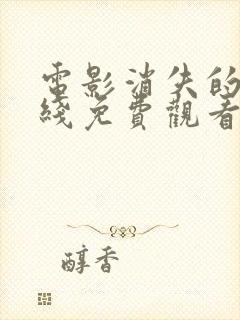 電影消失的
綫免費觀看
醇香